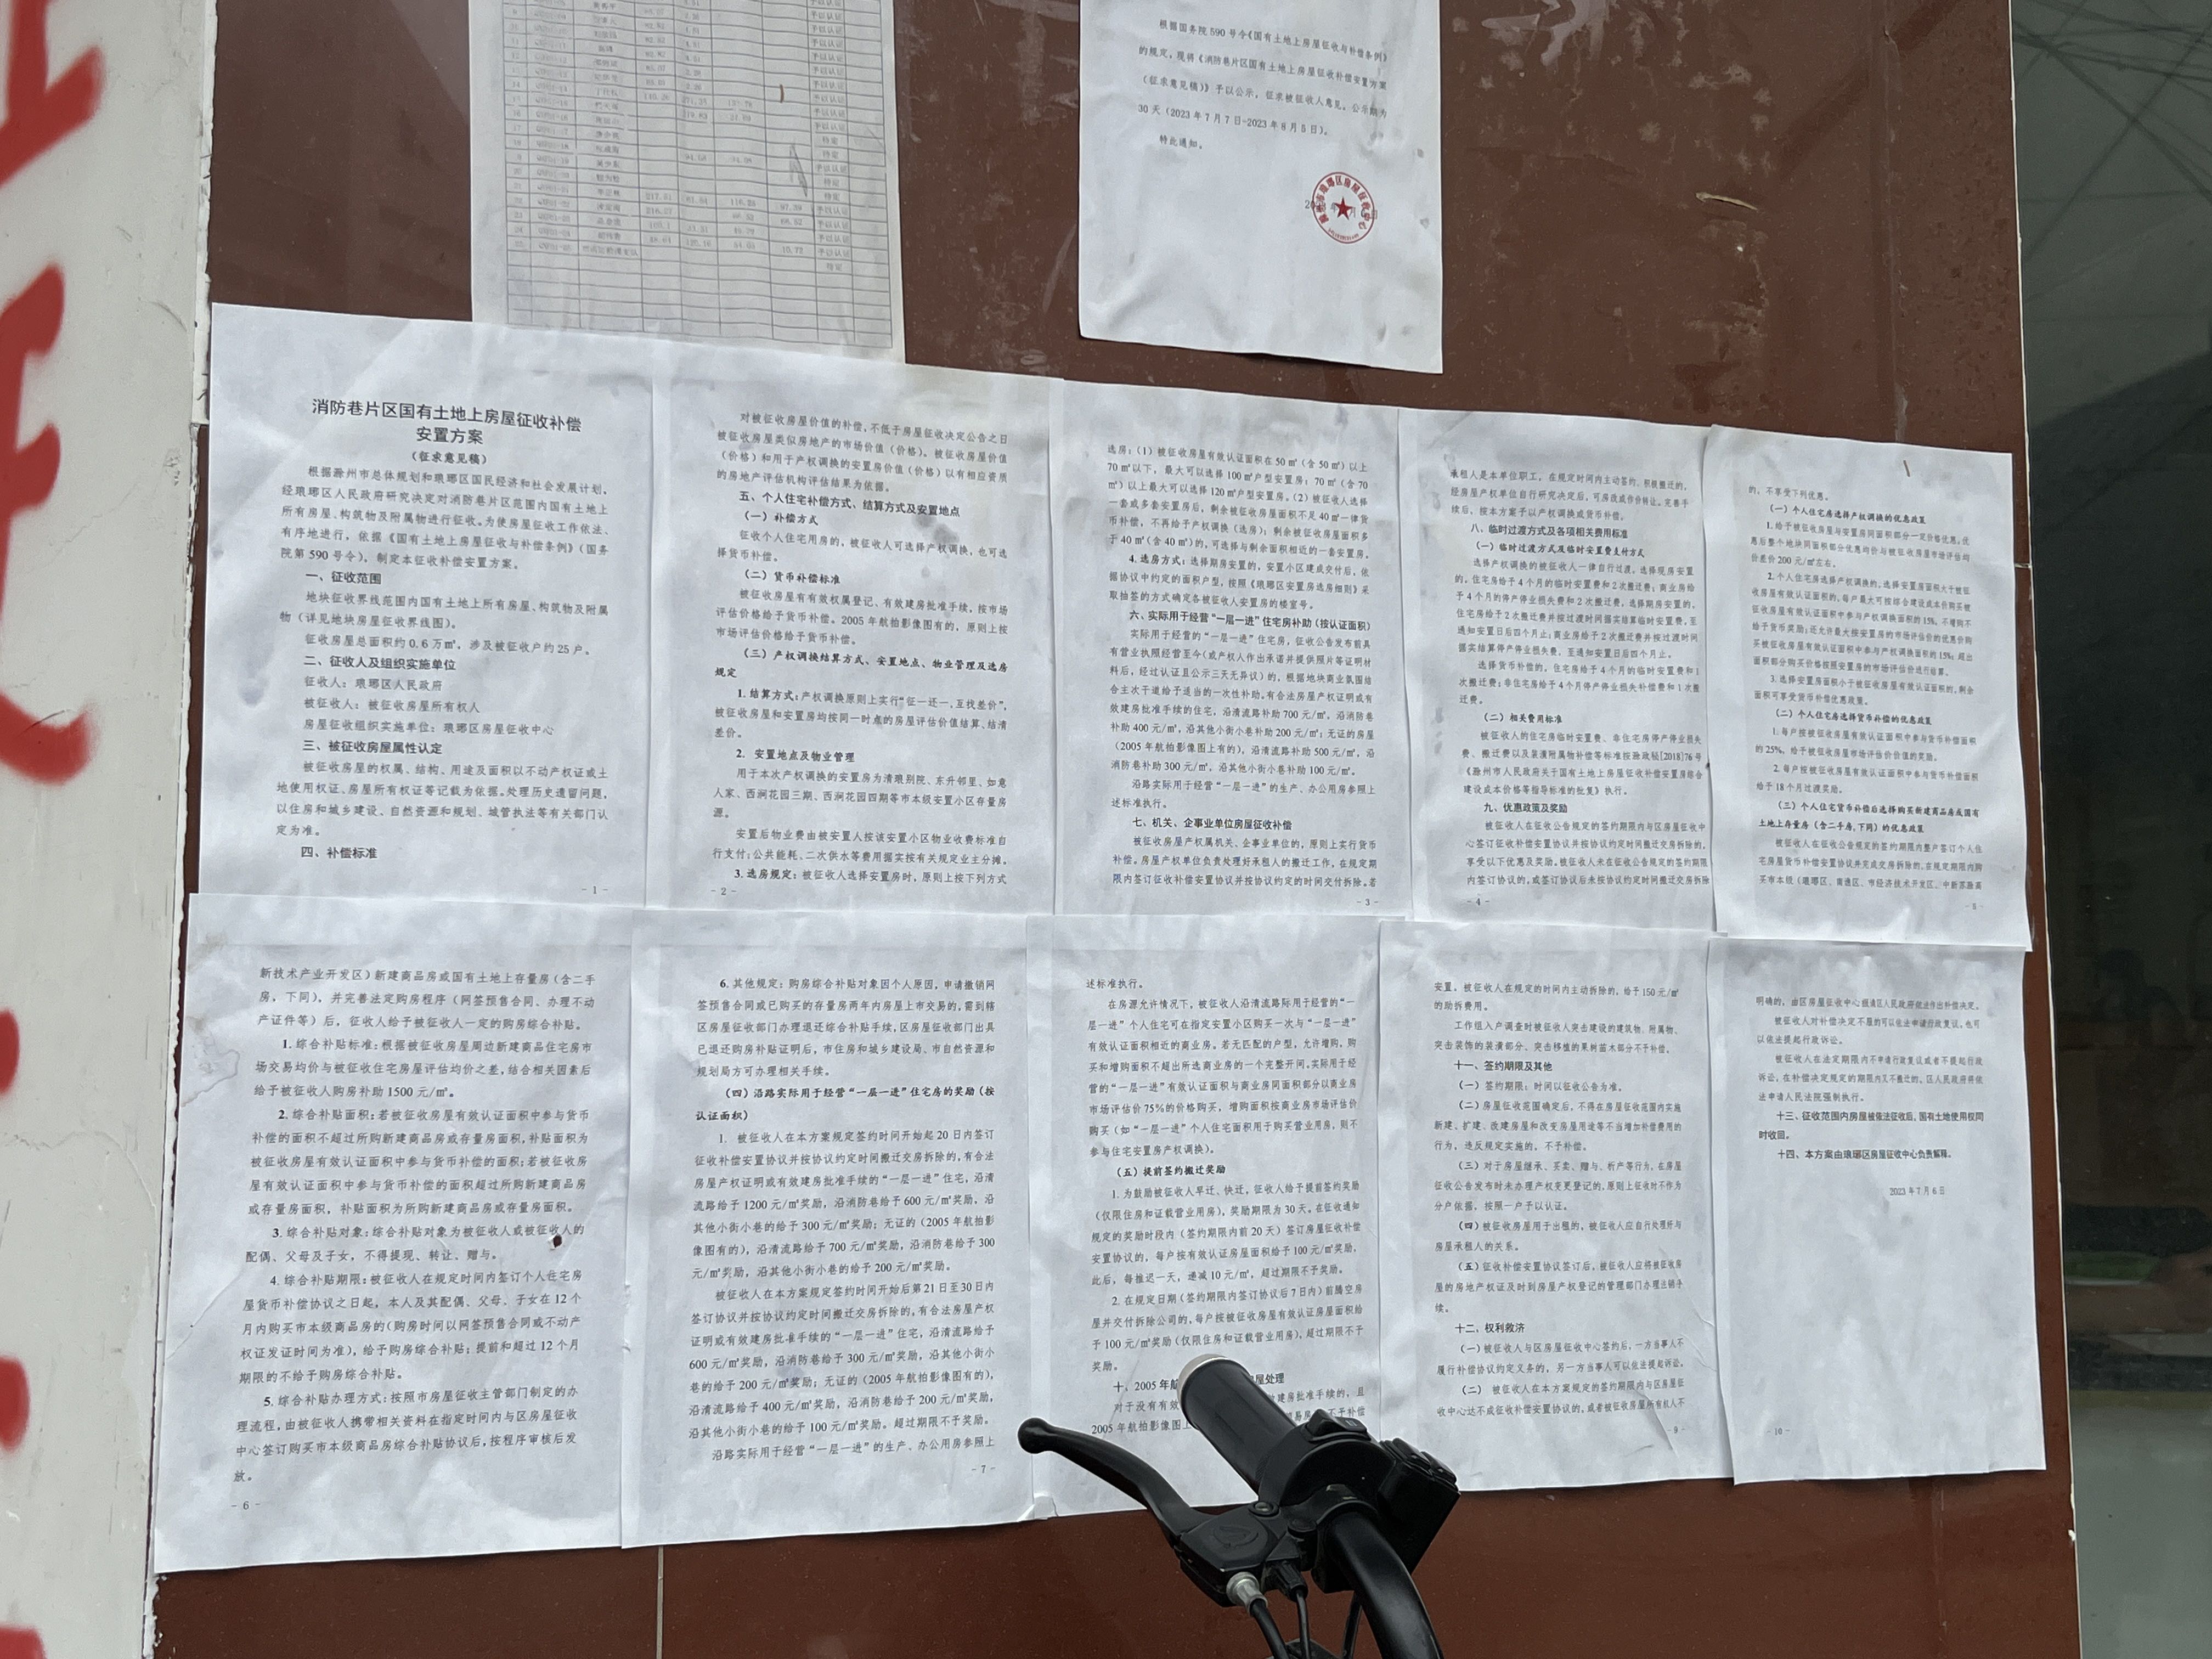 根据国务院 590 号令《国有土地上房屋征收与补偿条例》
的规定，现将《消防巷片区国有土地上房屋征收补偿安置方案
（征求意见稿）》予以公示，征求被征收人意见。公示期为
30 天（2023 年 7 月 7 日-2023 年 8 月 5 日）。
特此通知。
消防巷片区国有土地上房屋征收补偿
安置方案
（征求意见稿）
根据滁州市总体规划和琅琊区国民经济和社会发展计划，
经琅琊区人民政府研究决定对消防巷片区范围内国有土地上
所有房屋、构筑物及附属物进行征收。为使房屋征收工作依法、
有序地进行，依据《国有土地上房屋征收与补偿条例》（国务
院第 590 号令），制定本征收补偿安置方案。
一、征收范围
地块征收界线范围内国有土地上所有房屋、构筑物及附属
物（详见地块房屋征收界线图）。
征收房屋总面积约 0.6 万㎡，涉及被征收户约 25 户。
二、征收人及组织实施单位
征收人：琅琊区人民政府
被征收人：被征收房屋所有权人
房屋征收组织实施单位：琅琊区房屋征收中心
三、被征收房屋属性认定
被征收房屋的权属、结构、用途及面积以不动产权证或土
地使用权证、房屋所有权证等记载为依据。处理历史遗留问题，
以住房和城乡建设、自然资源和规划、城管执法等有关部门认
定为准。
四、补偿标准
- 1 -
对被征收房屋价值的补偿，不低于房屋征收决定公告之日
被征收房屋类似房地产的市场价值（价格）。被征收房屋价值
（价格）和用于产权调换的安置房价值（价格）以有相应资质
的房地产评估机构评估结果为依据。
五、个人住宅补偿方式、结算方式及安置地点
（一）补偿方式
征收个人住宅用房的，被征收人可选择产权调换，也可选
择货币补偿。
（二）货币补偿标准
被征收房屋有有效权属登记、有效建房批准手续，按市场
评估价格给予货币补偿。2005 年航拍影像图有的，原则上按
市场评估价格给予货币补偿。
（三）产权调换结算方式、安置地点、物业管理及选房
规定
1. 结算方式：产权调换原则上实行“征一还一，互找差价”，
被征收房屋和安置房均按同一时点的房屋评估价值结算、结清
差价。
2. 安置地点及物业管理
用于本次产权调换的安置房为清琅别院、东升邻里、如意
人家、西涧花园三期、西涧花园四期等市本级安置小区存量房
源。
安置后物业费由被安置人按该安置小区物业收费标准自
行支付；公共能耗、二次供水等费用据实按有关规定业主分摊。
3. 选房规定：被征收人选择安置房时，原则上按下列方式
- 2 -
选房：（1）被征收房屋有效认证面积在 50 ㎡（含 50 ㎡）以上
70 ㎡以下，最大可以选择 100 ㎡户型安置房；70 ㎡（含 70
㎡）以上最大可以选择 120 ㎡户型安置房。（2）被征收人选择
一套或多套安置房后，剩余被征收房屋面积不足 40 ㎡一律货
币补偿，不再给予产权调换（选房）；剩余被征收房屋面积多
于 40 ㎡（含 40 ㎡）的，可选择与剩余面积相近的一套安置房。
4. 选房方式：选择期房安置的，安置小区建成交付后，依
据协议中约定的面积户型，按照《琅琊区安置房选房细则》采
取抽签的方式确定各被征收人安置房的楼室号。
六、实际用于经营“一层一进”住宅房补助（按认证面积）
实际用于经营的“一层一进”住宅房，征收公告发布前具
有营业执照经营至今（或产权人作出承诺并提供照片等证明材
料后，经过认证且公示三天无异议）的，根据地块商业氛围结
合主次干道给予适当的一次性补助。有合法房屋产权证明或有
效建房批准手续的住宅，沿清流路补助 700 元/㎡，沿消防巷
补助 400 元/㎡，沿其他小街小巷补助 200 元/㎡；无证的房屋
（2005 年航拍影像图上有的），沿清流路补助 500 元/㎡，沿
消防巷补助 300 元/㎡，沿其他小街小巷补助 100 元/㎡。
沿路实际用于经营“一层一进”的生产、办公用房参照上
述标准执行。
七、机关、企事业单位房屋征收补偿
被征收房屋产权属机关、企事业单位的，原则上实行货币
补偿。房屋产权单位负责处理好承租人的搬迁工作，在规定期
限内签订征收补偿安置协议并按协议约定的时间交付拆除。若
- 3 -
承租人是本单位职工，在规定时间内主动签约、积极搬迁的，
经房屋产权单位自行研究决定后，可房改或作价转让，完善手
续后，按本方案予以产权调换或货币补偿。
八、临时过渡方式及各项相关费用标准
（一）临时过渡方式及临时安置费支付方式
选择产权调换的被征收人一律自行过渡。选择现房安置
的，住宅房给于 4 个月的临时安置费和 2 次搬迁费；商业房给
于 4 个月的停产停业损失费和 2 次搬迁费。选择期房安置的，
住宅房给于 2 次搬迁费并按过渡时间据实结算临时安置费，至
通知安置日后四个月止；商业房给于 2 次搬迁费并按过渡时间
据实结算停产停业损失费，至通知安置日后四个月止。
选择货币补偿的，住宅房给于 4 个月的临时安置费和 1
次搬迁费；非住宅房给于 4 个月停产停业损失补偿费和 1 次搬
迁费。
（二）相关费用标准
被征收人的住宅房临时安置费、非住宅房停产停业损失
费、搬迁费以及装潢附属物补偿等标准按滁政秘[2018]76 号
《滁州市人民政府关于国有土地上房屋征收补偿安置房综合
建设成本价格等指导标准的批复》执行。
九、优惠政策及奖励
被征收人在征收公告规定的签约期限内与区房屋征收中
心签订征收补偿安置协议并按协议约定时间搬迁交房拆除的，
享受以下优惠及奖励。被征收人未在征收公告规定的签约期限
内签订协议的，或签订协议后未按协议约定时间搬迁交房拆除
- 4 -
的，不享受下列优惠。
（一）个人住宅房选择产权调换的优惠政策
1. 给予被征收房屋与安置房同面积部分一定价格优惠，优
惠后整个地块同面积部分优惠均价与被征收房屋市场评估均
价差价 200 元/㎡左右。
2. 个人住宅房选择产权调换的，选择安置房面积大于被征
收房屋有效认证面积的，每户最大可按综合建设成本价购买被
征收房屋有效认证面积中参与产权调换面积的 15%，不增购不
给于货币奖励；还允许最大按安置房的市场评估价的优惠价购
买被征收房屋有效认证面积中参与产权调换面积的 15%；超出
面积部分购买价格按照安置房的市场评估价进行结算。
3. 选择安置房面积小于被征收房屋有效认证面积的，剩余
面积可享受货币补偿优惠政策。
（二）个人住宅房选择货币补偿的优惠政策
1. 每户按被征收房屋有效认证面积中参与货币补偿面积
的 25%，给予被征收房屋市场评估价价值的奖励。
2. 每户按被征收房屋有效认证面积中参与货币补偿面积
给于 18 个月过渡奖励。
（三）个人住宅货币补偿后选择购买新建商品房或国有
土地上存量房（含二手房，下同）的优惠政策
被征收人在征收公告规定的签约期限内整户签订个人住
宅房屋货币补偿安置协议并完成交房拆除的，在规定期限内购
买市本级（琅琊区、南谯区、市经济技术开发区、中新苏滁高
- 5 -
新技术产业开发区）新建商品房或国有土地上存量房（含二手
房，下同），并完善法定购房程序（网签预售合同、办理不动
产证件等）后，征收人给予被征收人一定的购房综合补贴。
1. 综合补贴标准：根据被征收房屋周边新建商品住宅房市
场交易均价与被征收住宅房屋评估均价之差，结合相关因素后
给于被征收人购房补助 1500 元/㎡。
2. 综合补贴面积：若被征收房屋有效认证面积中参与货币
补偿的面积不超过所购新建商品房或存量房面积，补贴面积为
被征收房屋有效认证面积中参与货币补偿的面积；若被征收房
屋有效认证面积中参与货币补偿的面积超过所购新建商品房
或存量房面积，补贴面积为所购新建商品房或存量房面积。
3. 综合补贴对象：综合补贴对象为被征收人或被征收人的
配偶、父母及子女，不得提现、转让、赠与。
4. 综合补贴期限：被征收人在规定时间内签订个人住宅房
屋货币补偿协议之日起，本人及其配偶、父母、子女在 12 个
月内购买市本级商品房的（购房时间以网签预售合同或不动产
权证发证时间为准），给予购房综合补贴；提前和超过 12 个月
期限的不给予购房综合补贴。
5. 综合补贴办理方式：按照市房屋征收主管部门制定的办
理流程，由被征收人携带相关资料在指定时间内与区房屋征收
中心签订购买市本级商品房综合补贴协议后，按程序审核后发
放。
- 6 -
6. 其他规定：购房综合补贴对象因个人原因，申请撤销网
签预售合同或已购买的存量房两年内房屋上市交易的，需到辖
区房屋征收部门办理退还综合补贴手续，区房屋征收部门出具
已退还购房补贴证明后，市住房和城乡建设局、市自然资源和
规划局方可办理相关手续。
（四）沿路实际用于经营“一层一进”住宅房的奖励（按
认证面积）
1. 被征收人在本方案规定签约时间开始起 20 日内签订
征收补偿安置协议并按协议约定时间搬迁交房拆除的，有合法
房屋产权证明或有效建房批准手续的“一层一进”住宅，沿清
流路给于 1200 元/㎡奖励，沿消防巷给于 600 元/㎡奖励，沿
其他小街小巷的给于 300 元/㎡奖励；无证的（2005 年航拍影
像图有的），沿清流路给于 700 元/㎡奖励，沿消防巷给于 300
元/㎡奖励，沿其他小街小巷的给于 200 元/㎡奖励。
被征收人在本方案规定签约时间开始后第 21 日至 30 日内
签订协议并按协议约定时间搬迁交房拆除的，有合法房屋产权
证明或有效建房批准手续的“一层一进”住宅，沿清流路给于
600 元/㎡奖励，沿消防巷给于 300 元/㎡奖励，沿其他小街小
巷的给于 200 元/㎡奖励；无证的（2005 年航拍影像图有的），
沿清流路给于 400 元/㎡奖励，沿消防巷给于 200 元/㎡奖励，
沿其他小街小巷的给于 100 元/㎡奖励。超过期限不予奖励。
沿路实际用于经营“一层一进”的生产、办公用房参照上
- 7 -
述标准执行。
在房源允许情况下，被征收人沿清流路际用于经营的“一
层一进”个人住宅可在指定安置小区购买一次与“一层一进”
有效认证面积相近的商业房。若无匹配的户型，允许增购，购
买和增购面积不超出所选商业房的一个完整开间。实际用于经
营的“一层一进”有效认证面积与商业房同面积部分以商业房
市场评估价 75%的价格购买，增购面积按商业房市场评估价
购买（如“一层一进”个人住宅面积用于购买营业用房，则不
参与住宅安置房产权调换）。
（五）提前签约搬迁奖励
1. 为鼓励被征收人早迁、快迁，征收人给于提前签约奖励
（仅限住房和证载营业用房），奖励期限为 30 天。在征收通知
规定的奖励时段内（签约期限内前 20 天）签订房屋征收补偿
安置协议的，每户按有效认证房屋面积给于 100 元/㎡奖励，
此后，每推迟一天，递减 10 元/㎡，超过期限不予奖励。
2. 在规定日期（签约期限内签订协议后 7 日内）前腾空房
屋并交付拆除公司的，每户按被征收房屋有效认证房屋面积给
于 100 元/㎡奖励（仅限住房和证载营业用房），超过期限不予
奖励。
十、2005 年航 屋处理
对于没有有效 建房批准手续的，且
2005 年航拍影像图上
安置，被征收人在规定的时间内主动拆除的，给于 150 元/㎡
的助拆费用。
工作组入户调查时被征收人突击建设的建筑物、附属物、
突击装饰的装潢部分、突击移植的果树苗木部分不予补偿。
十一、签约期限及其他
（一）签约期限：时间以征收公告为准。
（二）房屋征收范围确定后，不得在房屋征收范围内实施
新建、扩建、改建房屋和改变房屋用途等不当增加补偿费用的
行为，违反规定实施的，不予补偿。
（三）对于房屋继承、买卖、赠与、析产等行为，在房屋
征收公告发布时未办理产权变更登记的，原则上征收时不作为
分户依据，按照一户予以认证。
（四）被征收房屋用于出租的，被征收人应自行处理所与
房屋承租人的关系。
（五）征收补偿安置协议签订后，被征收人应将被征收房
屋的房地产权证及时到房屋产权登记的管理部门办理注销手
续。
十二、权利救济
（一）被征收人与区房屋征收中心签约后，一方当事人不
履行补偿协议约定义务的，另一方当事人可以依法提起诉讼。
（二）被征收人在本方案规定的签约期限内与区房屋征
收中心达不成征收补偿安置协议的，或者被征收房屋所有权人不
- 9 -
明确的，由区房屋征收中心报请区人民政府依法作出补偿决定。
被征收人对补偿决定不服的可以依法申请行政复议，也可
以依法提起行政诉讼。
被征收人在法定期限内不申请行政复议或者不提起行政
诉讼，在补偿决定规定的期限内又不搬迁的，区人民政府将依
法申请人民法院强制执行。
十三、征收范围内房屋被依法征收后，国有土地使用权同
时收回。
十四、本方案由琅琊区房屋征收中心负责解释。
2023 年 7 月 6 日
- 10 -